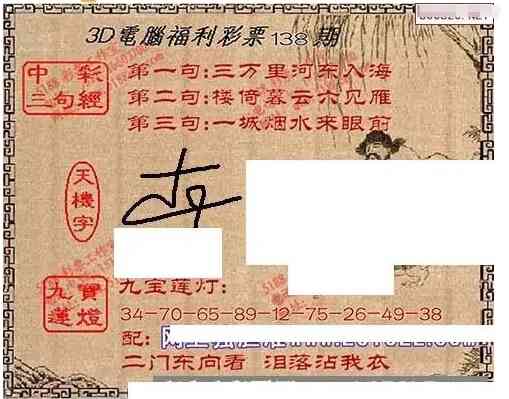 3D電腦福利彩票138期
中彩
三句經
第一句:三万里河东入海
第二句:楼倚暮云六见雁
第三句:一城烟水来眼前
天機字
九寶
蓮燈
九宝莲灯:
34-70-65-89-12-75-26-49-38
配:
二门东向看 泪落沾我衣